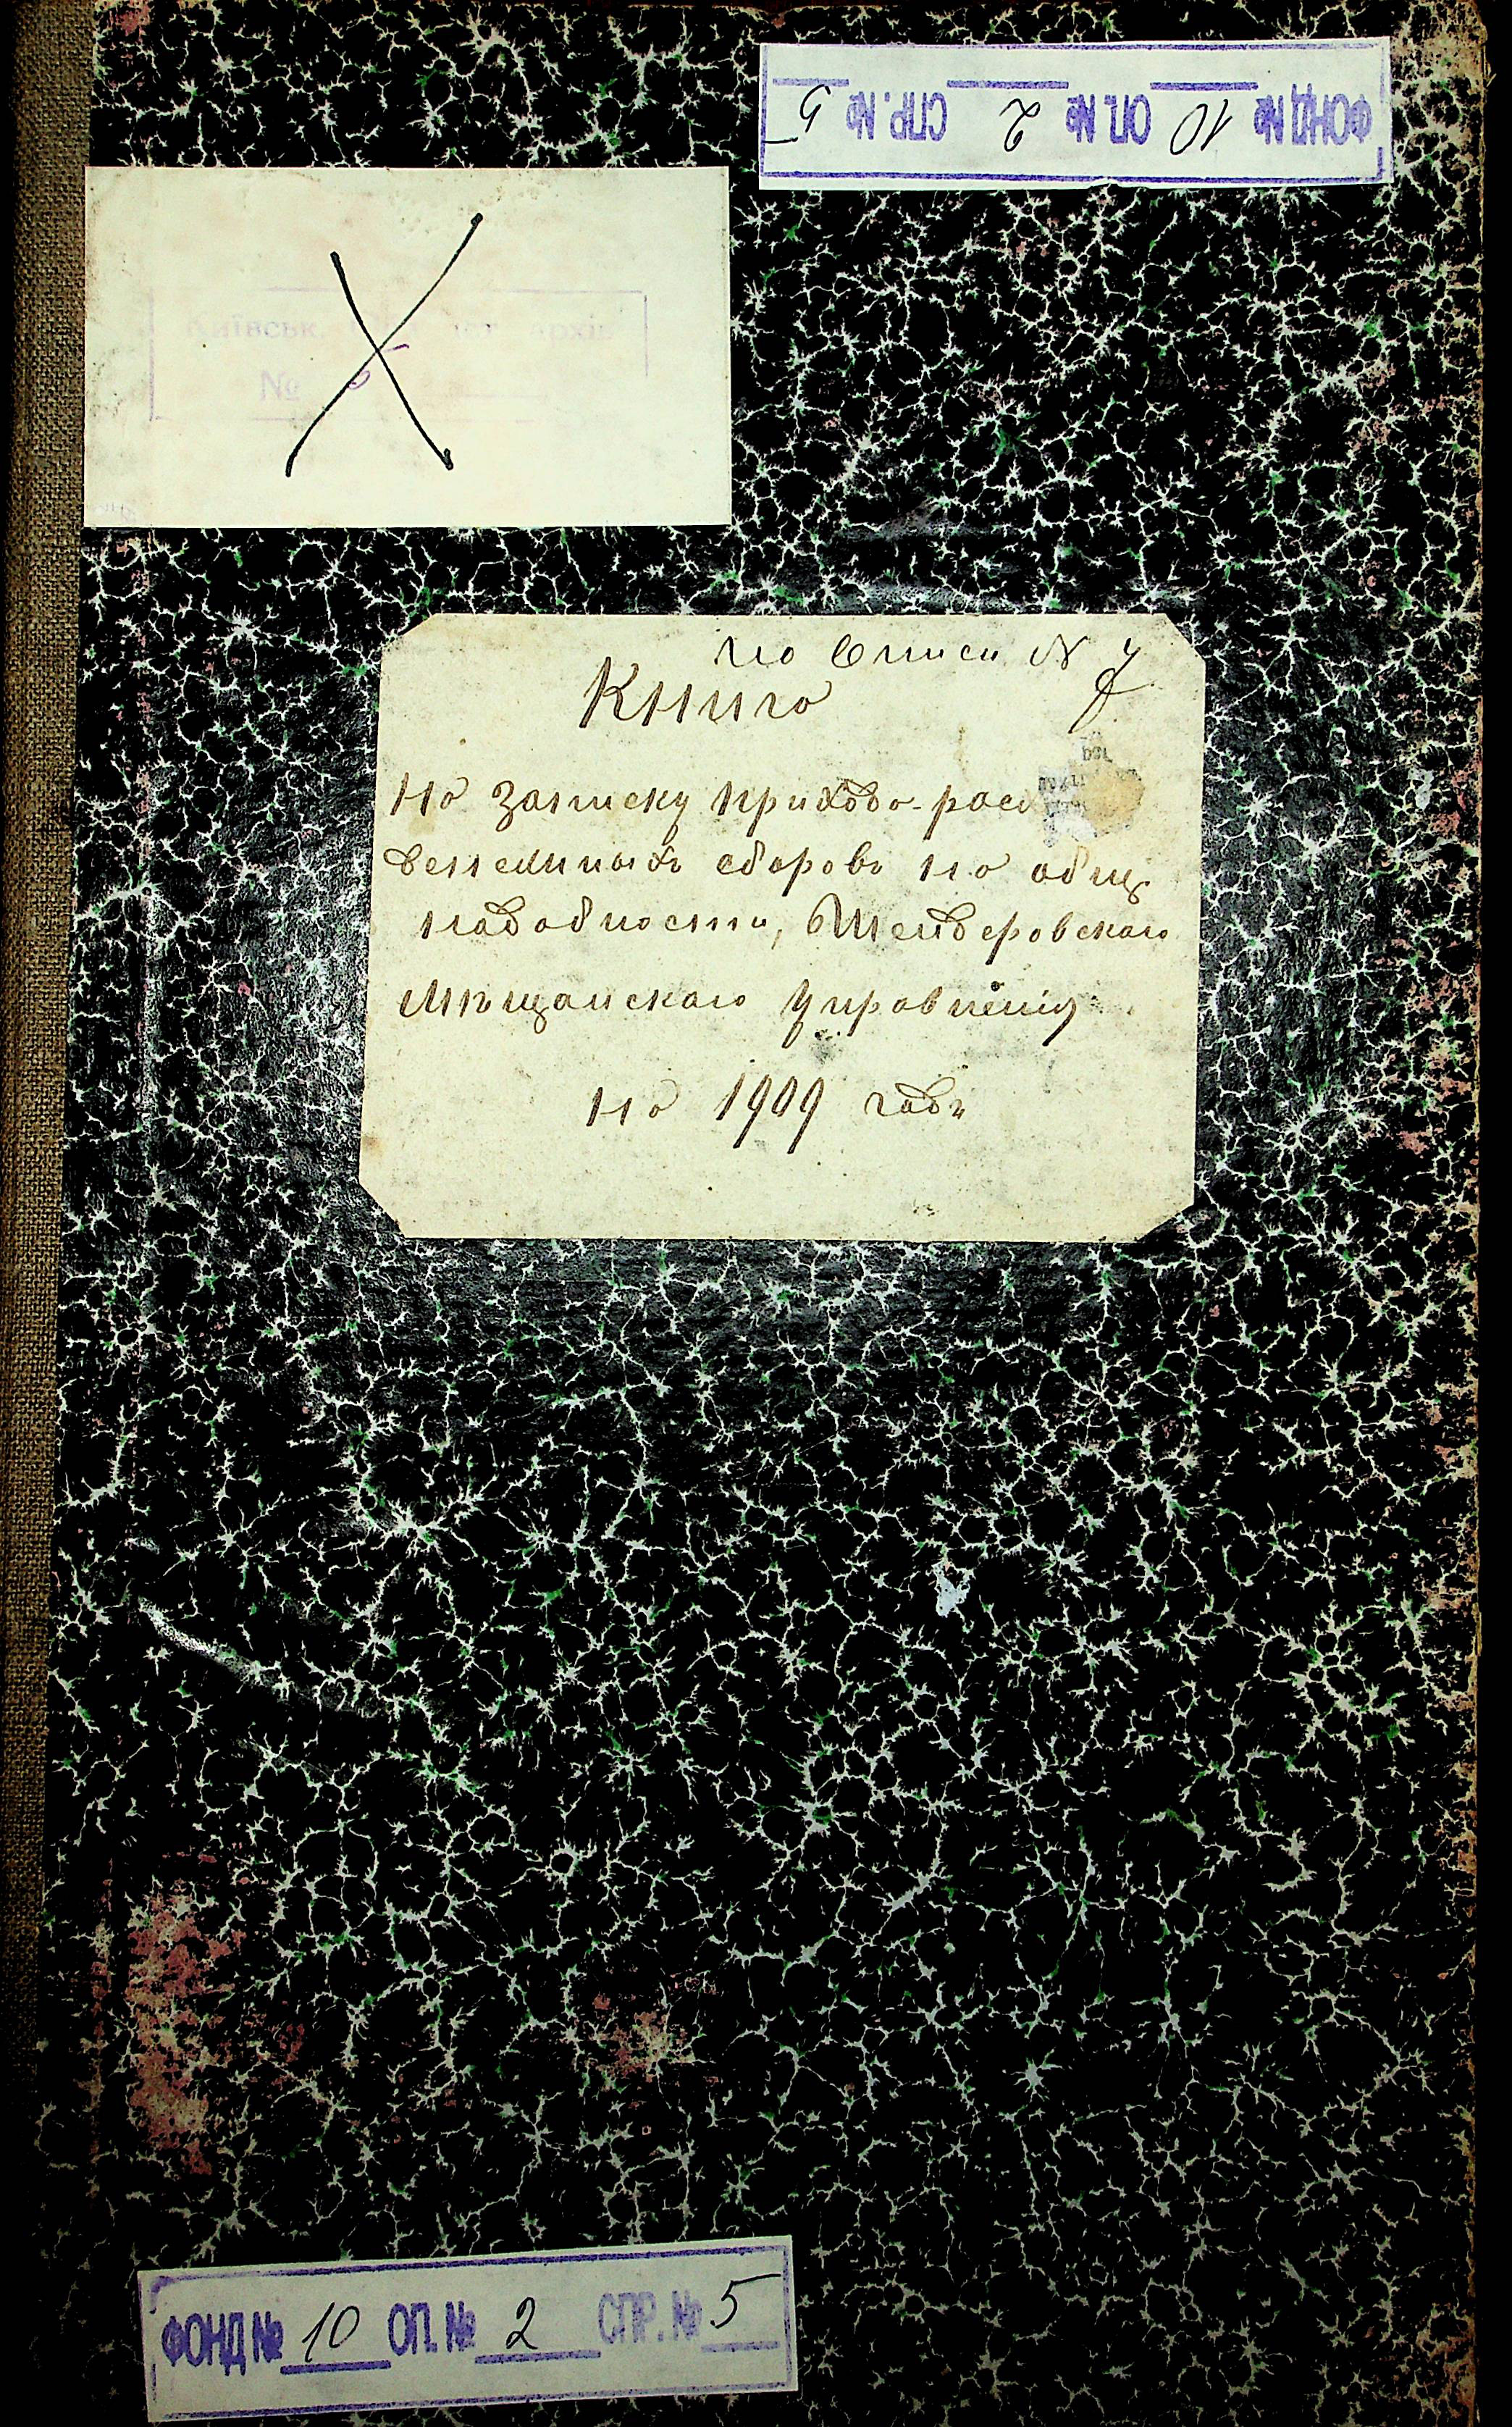 ФОНД № 10 ОП. № 2 СПР. № 5
Київськ. архів
№
по описи N 7
Книга
на записку приходо-расх
денежныхъ сборовъ на общ.
надобности, Шендеровскаго
Мѣщанскаго Управленія
на 1909 годъ
ФОНД № 10 ОП. № 2 СПР. № 5